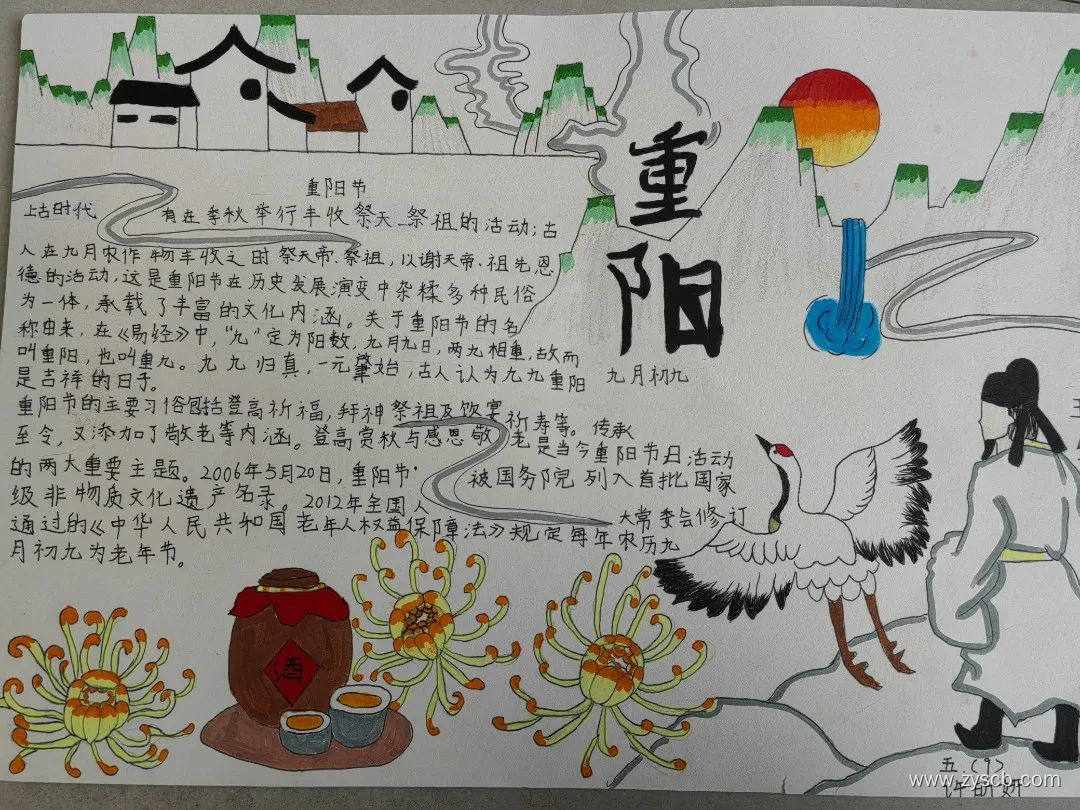 重阳
重阳节
上古时代 有在季秋举行丰收祭天、祭祖的活动;古
人在九月农作物丰收之时祭天帝、祭祖,以谢天帝、祖先恩
德的活动,这是重阳节在历史发展演变中杂糅多种民俗
为一体,承载了丰富的文化内涵。关于重阳节的名
称由来,在《易经》中,“九”定为阳数,九月九日,两九相重,故而
叫重阳,也叫重九。九九归真,一元肇始,古人认为九九重阳
是吉祥的日子。
九月初九
重阳节的主要习俗包括登高祈福,拜神祭祖及饮宴祈寿等。传承
至今,又添加了敬老等内涵。登高赏秋与感恩敬老是当今重阳节日活动
的两大重要主题。2006年5月20日,重阳节 被国务院列入首批国家
级非物质文化遗产名录。2012年全国人大常委会修订
通过的《中华人民共和国老年人权益保障法》规定每年农历九
月初九为老年节。
酒
五.(9)
许
www.zyscb.com